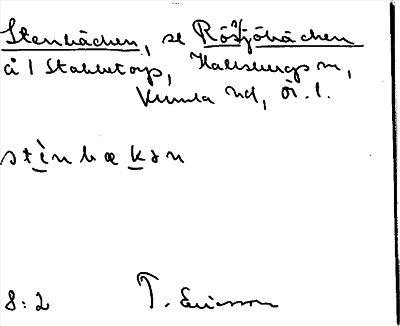 Stenbäcken, se Rösjöbäcken
å i Stabbetorp, Hallsbergs sn,
Kumla hd, Ör. l.
stènbækən
8:2 T. Ericsson